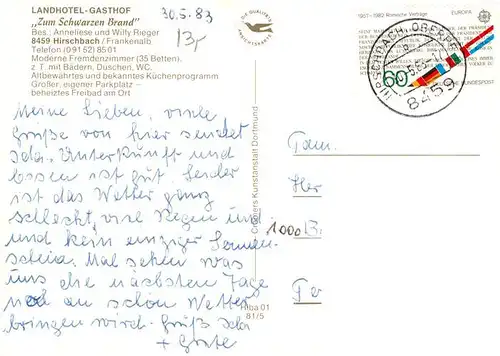 LANDHOTEL-GASTHOF
„Zum Schwarzen Brand"
Bes.: Anneliese und Willy Rieger
8459 Hirschbach / Frankenalb
Telefon (0 91 52) 85 01
Moderne Fremdenzimmer (35 Betten),
z. T. mit Bädern, Duschen, WC.
Altbewährtes und bekanntes Küchenprogramm
Großer, eigener Parkplatz –
beheiztes Freibad am Ort
30.5.83
Meine Lieben, viele
Grüße von hier sendet
Unterkunft und
Essen ist gut. Leider
ist das Wetter ganz
schlecht, viel Regen und
und kein einziger Sonnen-
schein. Mal sehen was
uns die nächsten Tage
noch an schön Wetter
bringen wird. Gruß
+ Grete
Cramers Kunstanstalt Dortmund
Hba 01
81/5
1957-1982 Römische Verträge
EUROPA
CEPT
60
BUNDESPOST
8459
Fam.
Her
1000 B